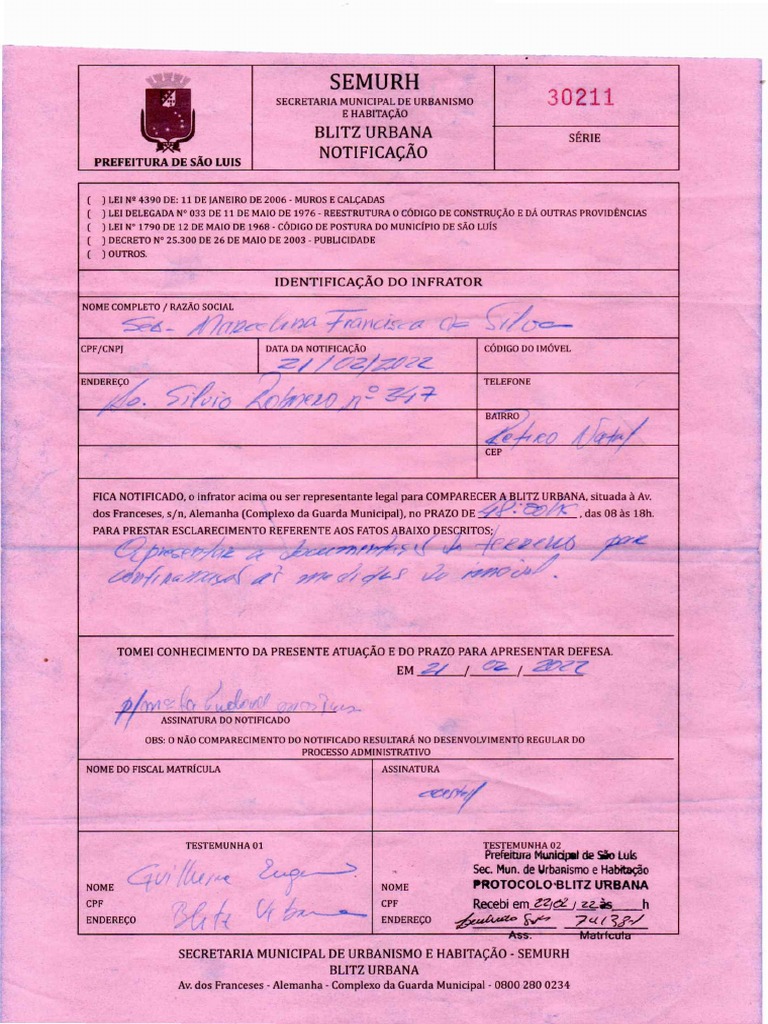 SEMURH
SECRETARIA MUNICIPAL DE URBANISMO
E HABITAÇÃO
BLITZ URBANA
NOTIFICAÇÃO
PREFEITURA DE SÃO LUIS
30211
SÉRIE
( ) LEI Nº 4390 DE: 11 DE JANEIRO DE 2006 - MUROS E CALÇADAS
( ) LEI DELEGADA N° 033 DE 11 DE MAIO DE 1976 - REESTRUTURA O CÓDIGO DE CONSTRUÇÃO E DÁ OUTRAS PROVIDÊNCIAS
( ) LEI N° 1790 DE 12 DE MAIO DE 1968 - CÓDIGO DE POSTURA DO MUNICÍPIO DE SÃO LUÍS
( ) DECRETO N° 25.300 DE 26 DE MAIO DE 2003 - PUBLICIDADE
( ) OUTROS.
IDENTIFICAÇÃO DO INFRATOR
NOME COMPLETO / RAZÃO SOCIAL
Marcelina Francisca da Silva
CPF/CNPJ
DATA DA NOTIFICAÇÃO
21/02/2022
CÓDIGO DO IMÓVEL
ENDEREÇO
Av. Silvio Romero nº 347
TELEFONE
BAIRRO
Retiro Natal
CEP
FICA NOTIFICADO, o infrator acima ou ser representante legal para COMPARECER A BLITZ URBANA, situada à Av.
dos Franceses, s/n, Alemanha (Complexo da Guarda Municipal), no PRAZO DE 48: , das 08 às 18h.
PARA PRESTAR ESCLARECIMENTO REFERENTE AOS FATOS ABAIXO DESCRITOS:
Apresentar a do terreno para
as medidas do imóvel.
TOMEI CONHECIMENTO DA PRESENTE ATUAÇÃO E DO PRAZO PARA APRESENTAR DEFESA.
EM 21 / 02 / 2022
ASSINATURA DO NOTIFICADO
OBS: O NÃO COMPARECIMENTO DO NOTIFICADO RESULTARÁ NO DESENVOLVIMENTO REGULAR DO
PROCESSO ADMINISTRATIVO
NOME DO FISCAL MATRÍCULA
ASSINATURA
TESTEMUNHA 01
NOME Guilherme
CPF
ENDEREÇO Blitz Urbana
TESTEMUNHA 02
Prefeitura Municipal de São Luís
Sec. Mun. de Urbanismo e Habitação
PROTOCOLO-BLITZ URBANA
NOME
CPF
Recebi em 22/02/22 às h
ENDEREÇO
741381
Ass. Matrícula
SECRETARIA MUNICIPAL DE URBANISMO E HABITAÇÃO - SEMURH
BLITZ URBANA
Av. dos Franceses - Alemanha - Complexo da Guarda Municipal - 0800 280 0234